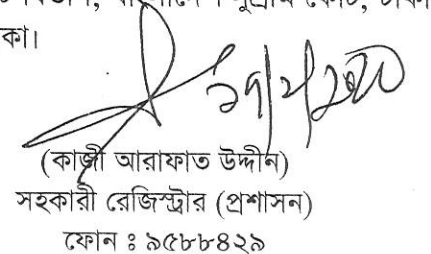 বাংলাদেশ সুপ্রীম কোর্ট, ঢাকা
কা।
(কাজী আরাফাত উদ্দীন)
সহকারী রেজিস্ট্রার (প্রশাসন)
ফোন ঃ ৯৫৮৮৪২৯